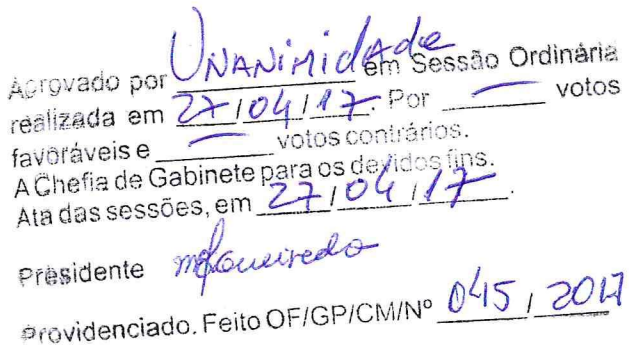 Aprovado por Unanimidade em Sessão Ordinária
realizada em 27/04/17. Por — votos
favoráveis e — votos contrários.
A Chefia de Gabinete para os devidos fins.
Ata das sessões, em 27/04/17.
Presidente
Providenciado. Feito OF/GP/CM/Nº 045/2017